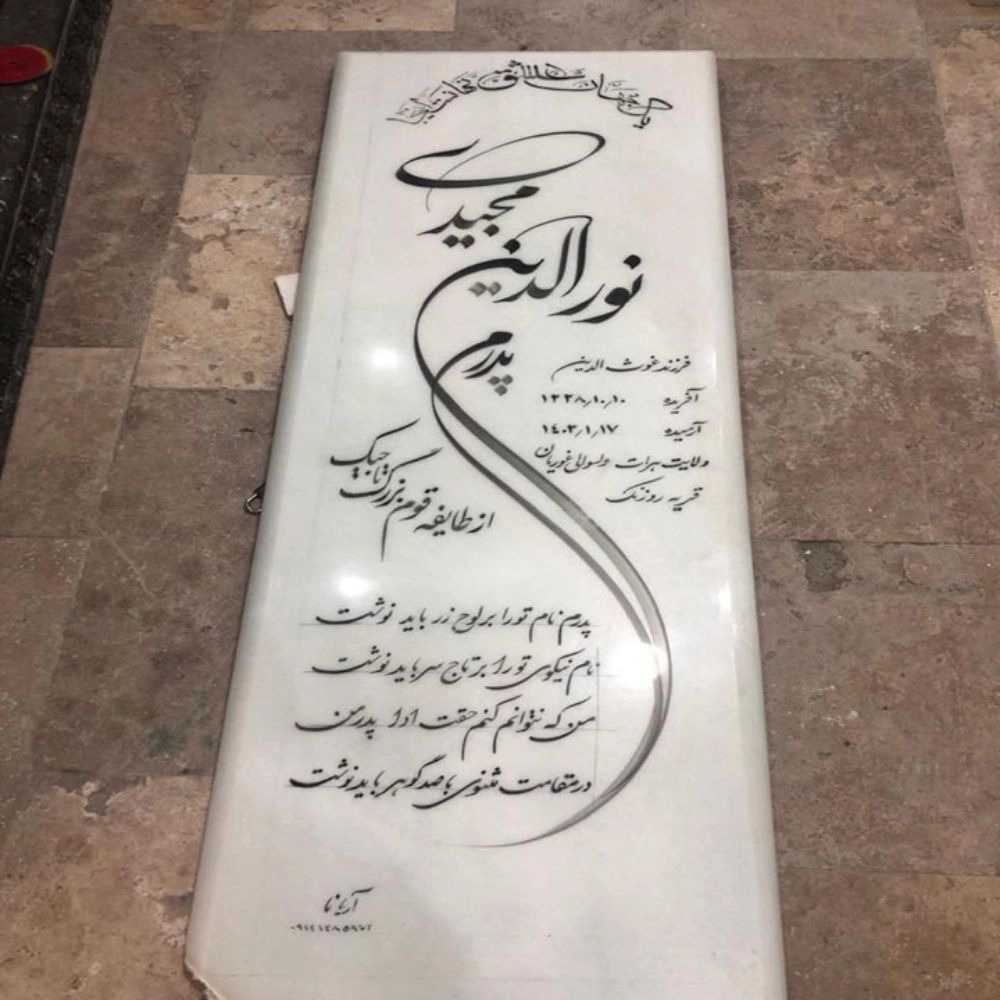 یک جهان عشق نهانست اینجا
پدرم
نورالدین
مجیدی
فرزند غوث الدین
آفریده ۱۳۳۸/۱۰/۱۰
آرمیده ۱۴۰۳/۱/۱۷
ولایت هرات ولسوالی غوریان
قریه روزنک
از طایفه قوم بزرگ تاجیک
پدرم نام تو را بر لوح زر باید نوشت
نام نیکوی تو را بر تاج سر باید نوشت
من که نتوانم کنم حقت ادا پدر من
در مقامت مثنوی با صد گوهر باید نوشت
آریانا